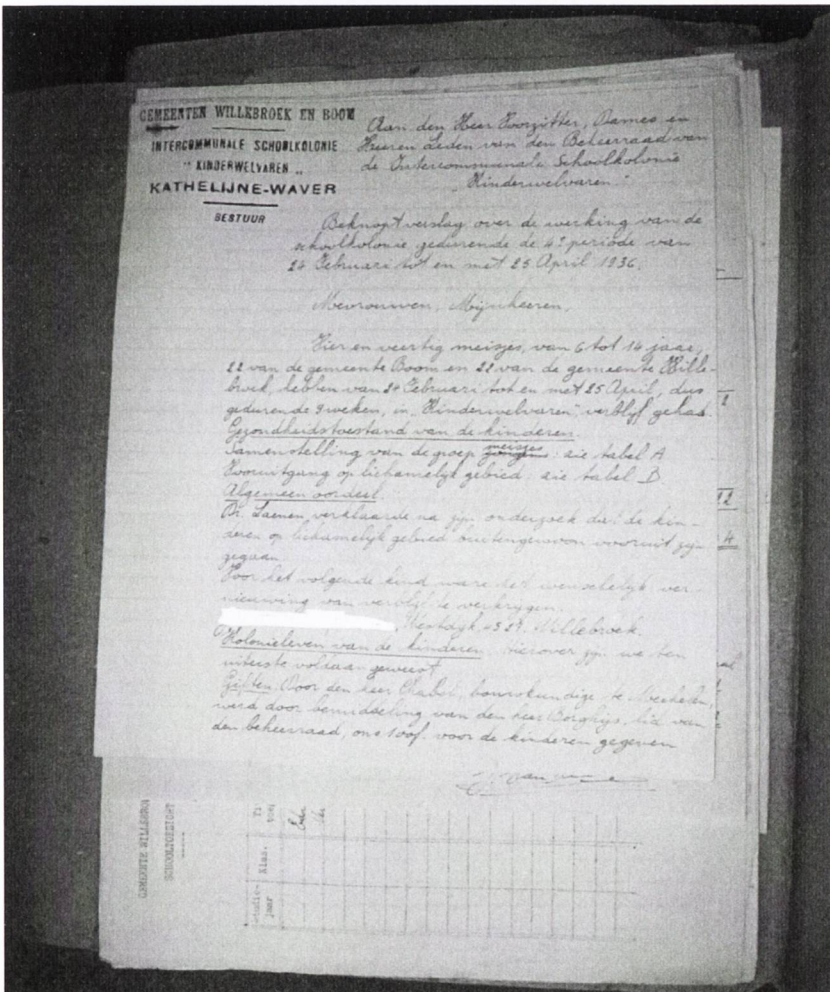 GEMEENTEN WILLEBROEK EN BOOM
INTERCOMMUNALE SCHOOLKOLONIE
" KINDERWELVAREN "
KATHELIJNE-WAVER
BESTUUR
Aan den Heer Voorzitter, Dames en
Heeren Leden van den Beheerraad van
de Intercommunale Schoolkolonie
"Kinderwelvaren"
Beknopt verslag over de werking van de
schoolkolonie gedurende de 4e periode van
24 Februari tot en met 25 April 1936.
Mevrouwen, Mijnheeren,
Vier en veertig meisjes, van 6 tot 14 jaar,
22 van de gemeente Boom en 22 van de gemeente Wille-
broek, hebben van 24 Februari tot en met 25 April, dus
gedurende 9 weken, in "Kinderwelvaren" verblijf gehad.
Gezondheidstoestand van de kinderen.
Samenstelling van de groep jongens meisjes: zie tabel A
Vooruitgang op lichamelijk gebied: zie tabel B
Algemeen oordeel.
Dr. Laenen verklaarde na zijn onderzoek dat de kin-
deren op lichamelijk gebied buitengewoon vooruit zijn
gegaan.
Voor het volgende kind ware het wenschelijk ver-
nieuwing van verblijf te verkrijgen.
Willebroek.
Kolonieleven van de kinderen, hierover zijn we ten
uiterste voldaan geweest.
Giften. Door den heer bouwkundige te Mechelen,
werd door bemiddeling van den heer Borghijs, lid van
den beheerraad, ons 100f. voor de kinderen gegeven
GEMEENTE WILLEBROEK
SCHOOLTOEZICHT
Studie-
jaar
Klas.